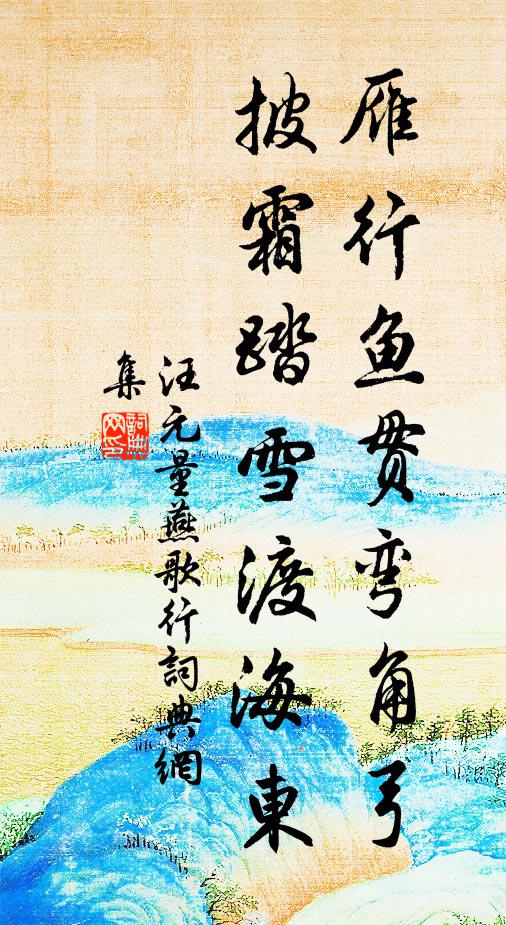 雁行鱼贯弯角弓
披霜踏雪渡海東
汪元量燕歌行詞典網
集
詞典網印